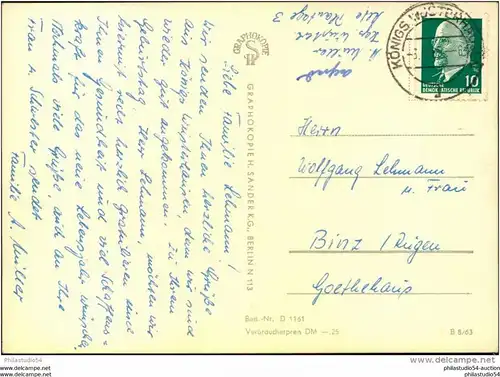 Liebe Familie Lehmann!
Wir senden Ihnen herzliche Grüße
aus Königs Wusterhausen, denn wir sind
wieder gut angekommen. Zu Ihrem
Geburtstag, Herr Lehmann, möchten wir
recht herzlich gratulieren und
Ihnen Gesundheit und viel Schaffens=
kraft für das neue Lebensjahr wünschen.
Nochmals viele Grüße, auch an Ihre
Frau u. Schwester sendet
Familie A. Müller
GRAPHOKOPIE
GRAPHOKOPIE H. SANDER KG., BERLIN N 113
A. Müller
Kgs. Wuster
3
KÖNIGS WUSTERHAUSEN
10
DEUTSCHE DEMOKRATISCHE REPUBLIK
Herrn
Wolfgang Lehmann
u. Frau
Binz / Rügen
Goethehaus
Best.-Nr. D 1161
Verbraucherpreis DM —,25
B 8/63
philastudio54
Philastudio54-auction
philastudio54